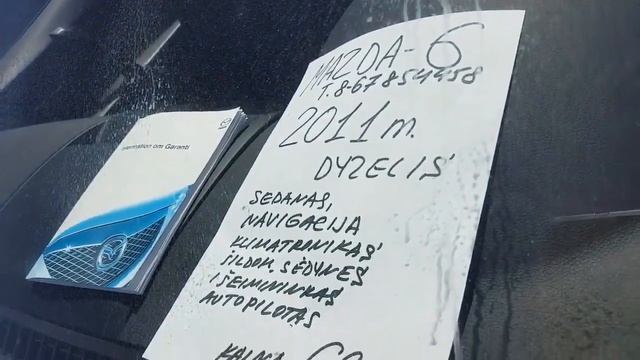 Information om Garanti
MAZDA-6
T.8-67854458
2011 m.
DYZELIS
SEDANAS,
NAVIGACIJA
KLIMATRONIKAS
ŠILDOM. SĖDYNĖS
IŠEIMININKAS
AUTOPILOTAS
KAINA